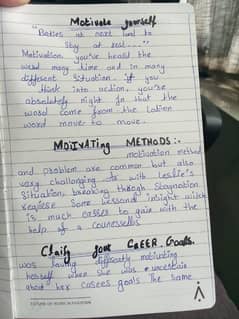 Motivate yourself
"Bodies at rest tend to
stay at rest....."
Motivation, you've heard the
word many time and in many
different situation. if you
think into action, you're
absolutely right in that the
word come from the Latien
word move to move.
MOTIVATING METHODS:-
motivation method
and problem are common but also
very challenging as with Leslie's
Situation, breaking though Stagnation
requires Some personal insight which
is much easser to gain with the
help of a counesellis
Clarify your CAEER Goals.
was having difficulty motivating
herself when she was uncertain
about her casees goals The same
FUTURE OF WORK IN PAKISTAN